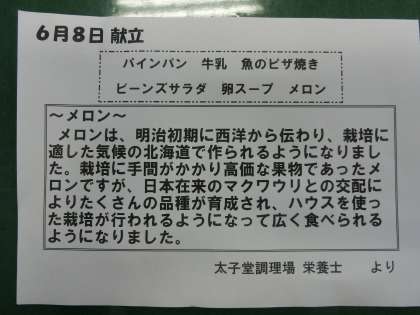 6月8日 献立
パインパン 牛乳 魚のピザ焼き
ビーンズサラダ 卵スープ メロン
～メロン～
メロンは、明治初期に西洋から伝わり、栽培に
適した気候の北海道で作られるようになりまし
た。栽培に手間がかかり高価な果物であったメ
ロンですが、日本在来のマクワウリとの交配に
よりたくさんの品種が育成され、ハウスを使っ
た栽培が行われるようになって広く食べられる
ようになりました。
太子堂調理場 栄養士 より